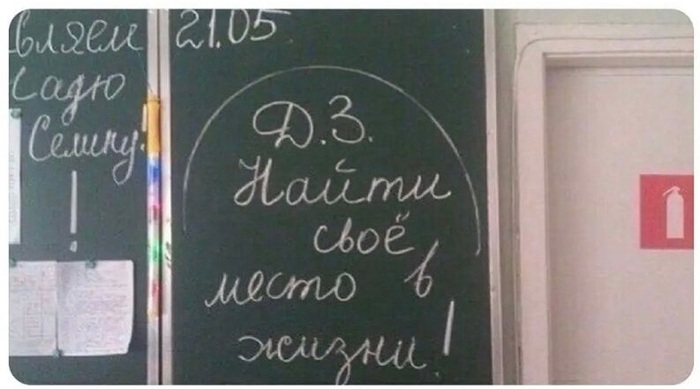 вляем
Надю
Семину!
!
21.05
Д.З.
Найти
своё
место в
жизни!